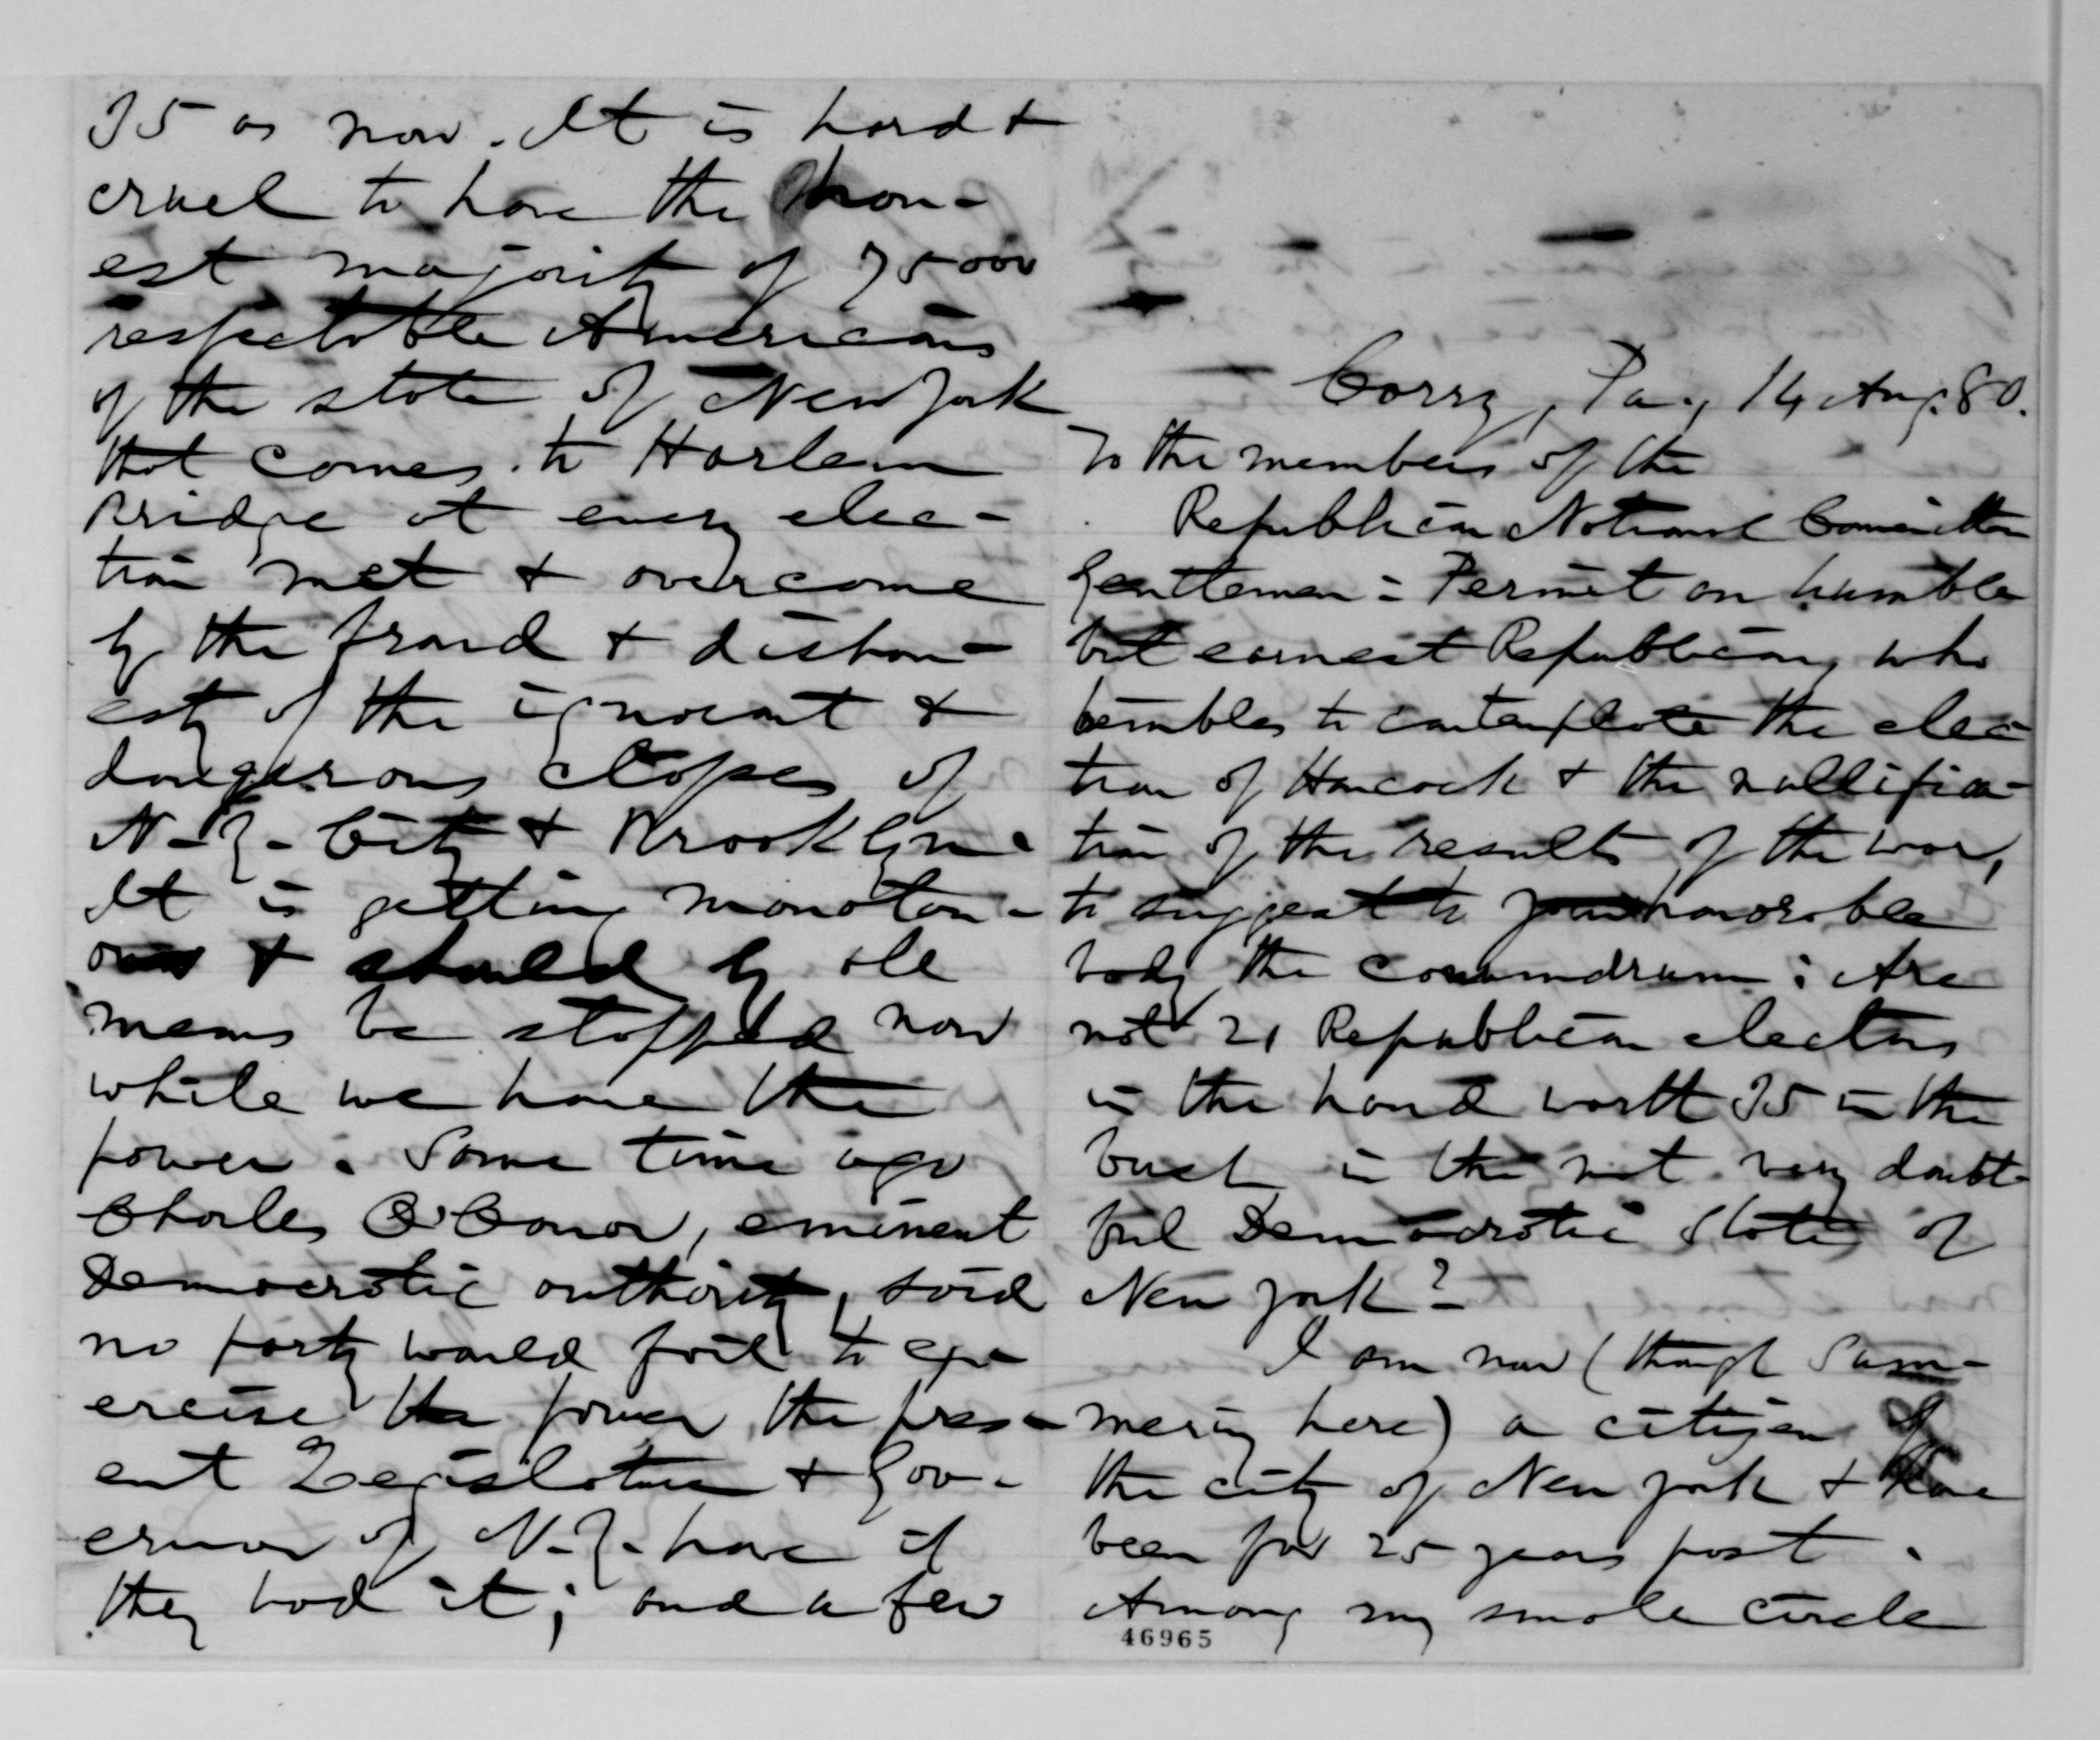 35 as now. It is hard &
cruel to have the hon-
est majority of 75000
respectable Americans
of the state of New York
that comes to Harlem
Bridge at every elec-
tion met & overcome
by the fraud & dishon-
esty of the ignorant &
dangerous classes of
N-Y- City & Brooklyn.
It is getting monoton-
ous & should by all
means be stopped now
while we have the
power. Some time ago
Charles O'Conor, eminent
Democratic authority, said
no party would fail to ex-
ercise the power the pres-
ent Legislature & Gov-
ernor of N-Y- have if
they had it; and a few
Corry, Pa., 14 Aug. 80.
To the members of the
Republican National Committee
Gentlemen:- Permit an humble
but earnest Republican, who
trembles to contemplate the elec-
tion of Hancock & the nullifica-
tion of the results of the war,
to suggest to your honorable
body the conundrum: Are
not 21 Republican electors
in the hand worth 35 in the
bush in the not very doubt-
ful Democratic State of
New York?-
I am now (though Sum-
mering here) a citizen of
the city of New York & have
been for 25 years past.
Among my small circle
46965